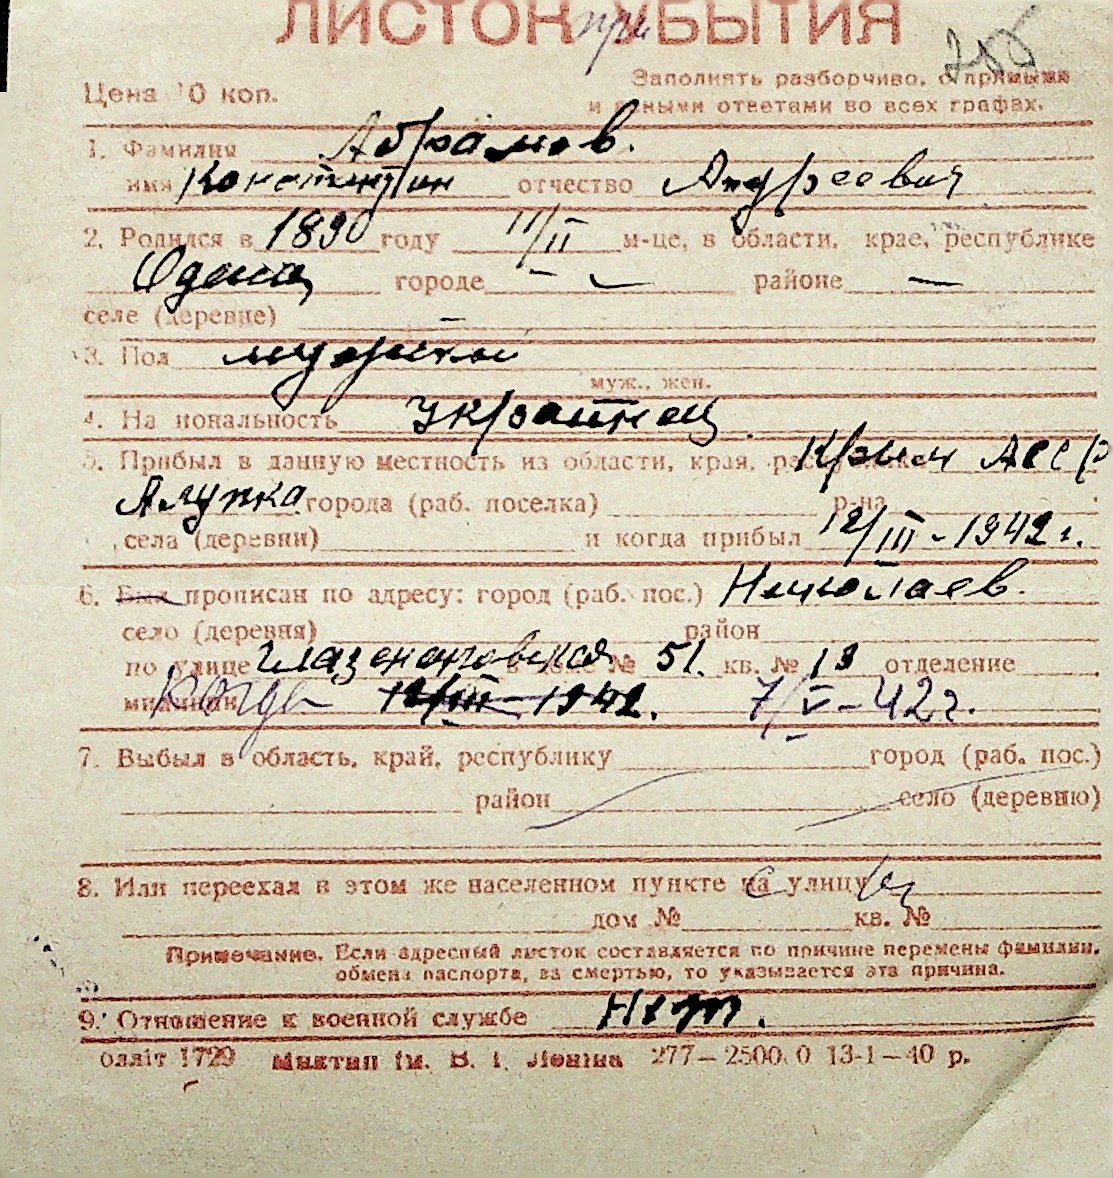 ЛИСТОК УБЫТИЯ
при
Цена 10 коп.
Заполнять разборчиво, с прямыми
и ясными ответами во всех графах.
1. Фамилия Абрамов.
имя Константин отчество Андреевич
2. Родился в 1890 году 11/II м-це, в области, крае, республике
Одесса городе — районе —
селе (деревне) —
3. Пол мужской
муж., жен.
4. Национальность украинец.
5. Прибыл в данную местность из области, края, республики Крым АССР
Алупка города (раб. поселка) р-на
села (деревни) и когда прибыл 12/III - 1942 г.
6. Был прописан по адресу: город (раб. пос.) Николаев.
село (деревня) район
по улице дом № 51. кв. № 19 отделение
милиции Когда 12/III - 1942. 7/V - 42 г.
7. Выбыл в область, край, республику город (раб. пос.)
район село (деревню)
8. Или переехал в этом же населенном пункте на улицу
дом № кв. №
Примечание. Если адресный листок составляется по причине перемены фамилии,
обмена паспорта, за смертью, то указывается эта причина.
9. Отношение к военной службе Нет.
1729 ім. В. І. Леніна 277—2500.0 13-1—40 р.